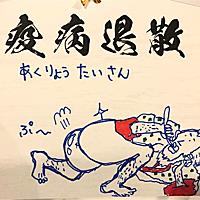 疫病退散
あくりょう たいさん
ぷ〜